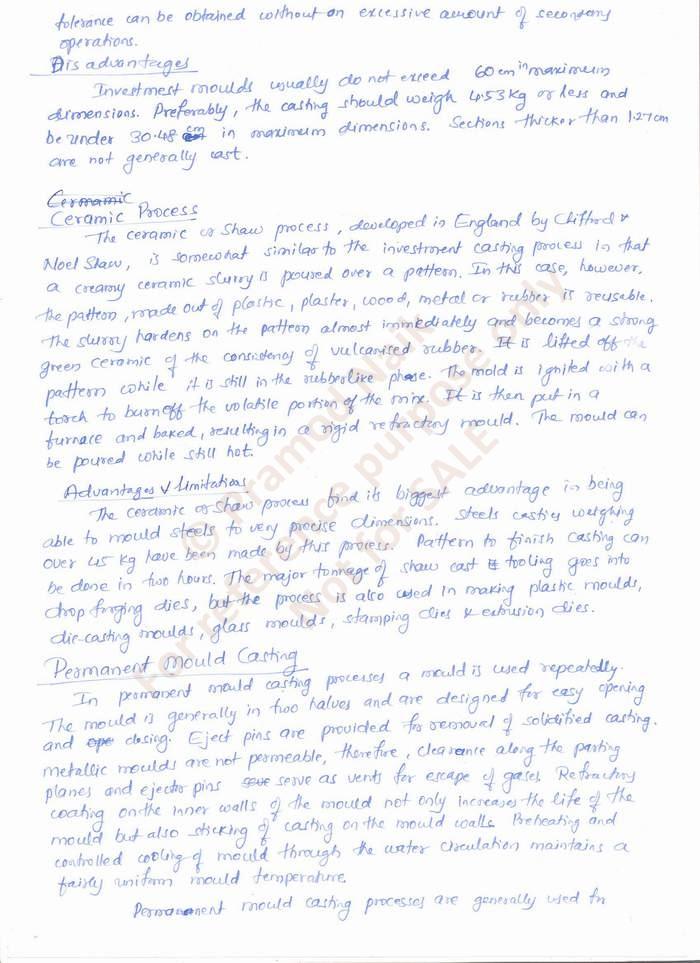 tolerance can be obtained without an excessive amount of secondary
operations.
Disadvantages
Investment moulds usually do not exceed 60cm in maximum
dimensions. Preferably, the casting should weigh 4.53 Kg or less and
be under 30.48 cm in maximum dimensions. Sections thicker than 1.27cm
are not generally cast.
Cermamic
Ceramic Process
The ceramic or Shaw process, developed in England by Clifford &
Noel Shaw, is somewhat similar to the investment casting process in that
a creamy ceramic slurry is poured over a pattern. In this case, however,
the pattern, made out of plastic, plaster, wood, metal or rubber is reusable.
The slurry hardens on the pattern almost immediately and becomes a strong
green ceramic of the consistency of vulcanised rubber. It is lifted off the
pattern while it is still in the rubberlike phase. The mold is ignited with a
torch to burn off the volatile portion of the mix. It is then put in a
furnace and baked, resulting in a rigid refractory mould. The mould can
be poured while still hot.
Advantages & limitations
The ceramic or Shaw process find its biggest advantage in being
able to mould steels to very precise dimensions. Steels casties weighing
over 45 Kg have been made by this process. Pattern to finish casting can
be done in two hours. The major tonnage of shaw cast tooling goes into
drop forging dies, but the process is also used in making plastic moulds,
die-casting moulds, glass moulds, stamping dies & extrusion dies.
Permanent Mould Casting
In permanent mould casting processes a mould is used repeatedly.
The mould is generally in two halves and are designed for easy opening
and ope closing. Eject pins are provided for removal of solidified casting.
metallic moulds are not permeable, therefore, clearance along the parting
planes and ejector pins serve as vents for escape of gases. Refractory
coating on the inner walls of the mould not only increases the life of the
mould but also sticking of casting on the mould walls. Preheating and
controlled cooling of mould through the water circulation maintains a
fairly uniform mould temperature.
Permanent mould casting processes are generally used for
© Pramod Naik
For reference purpose only
Not for SALE